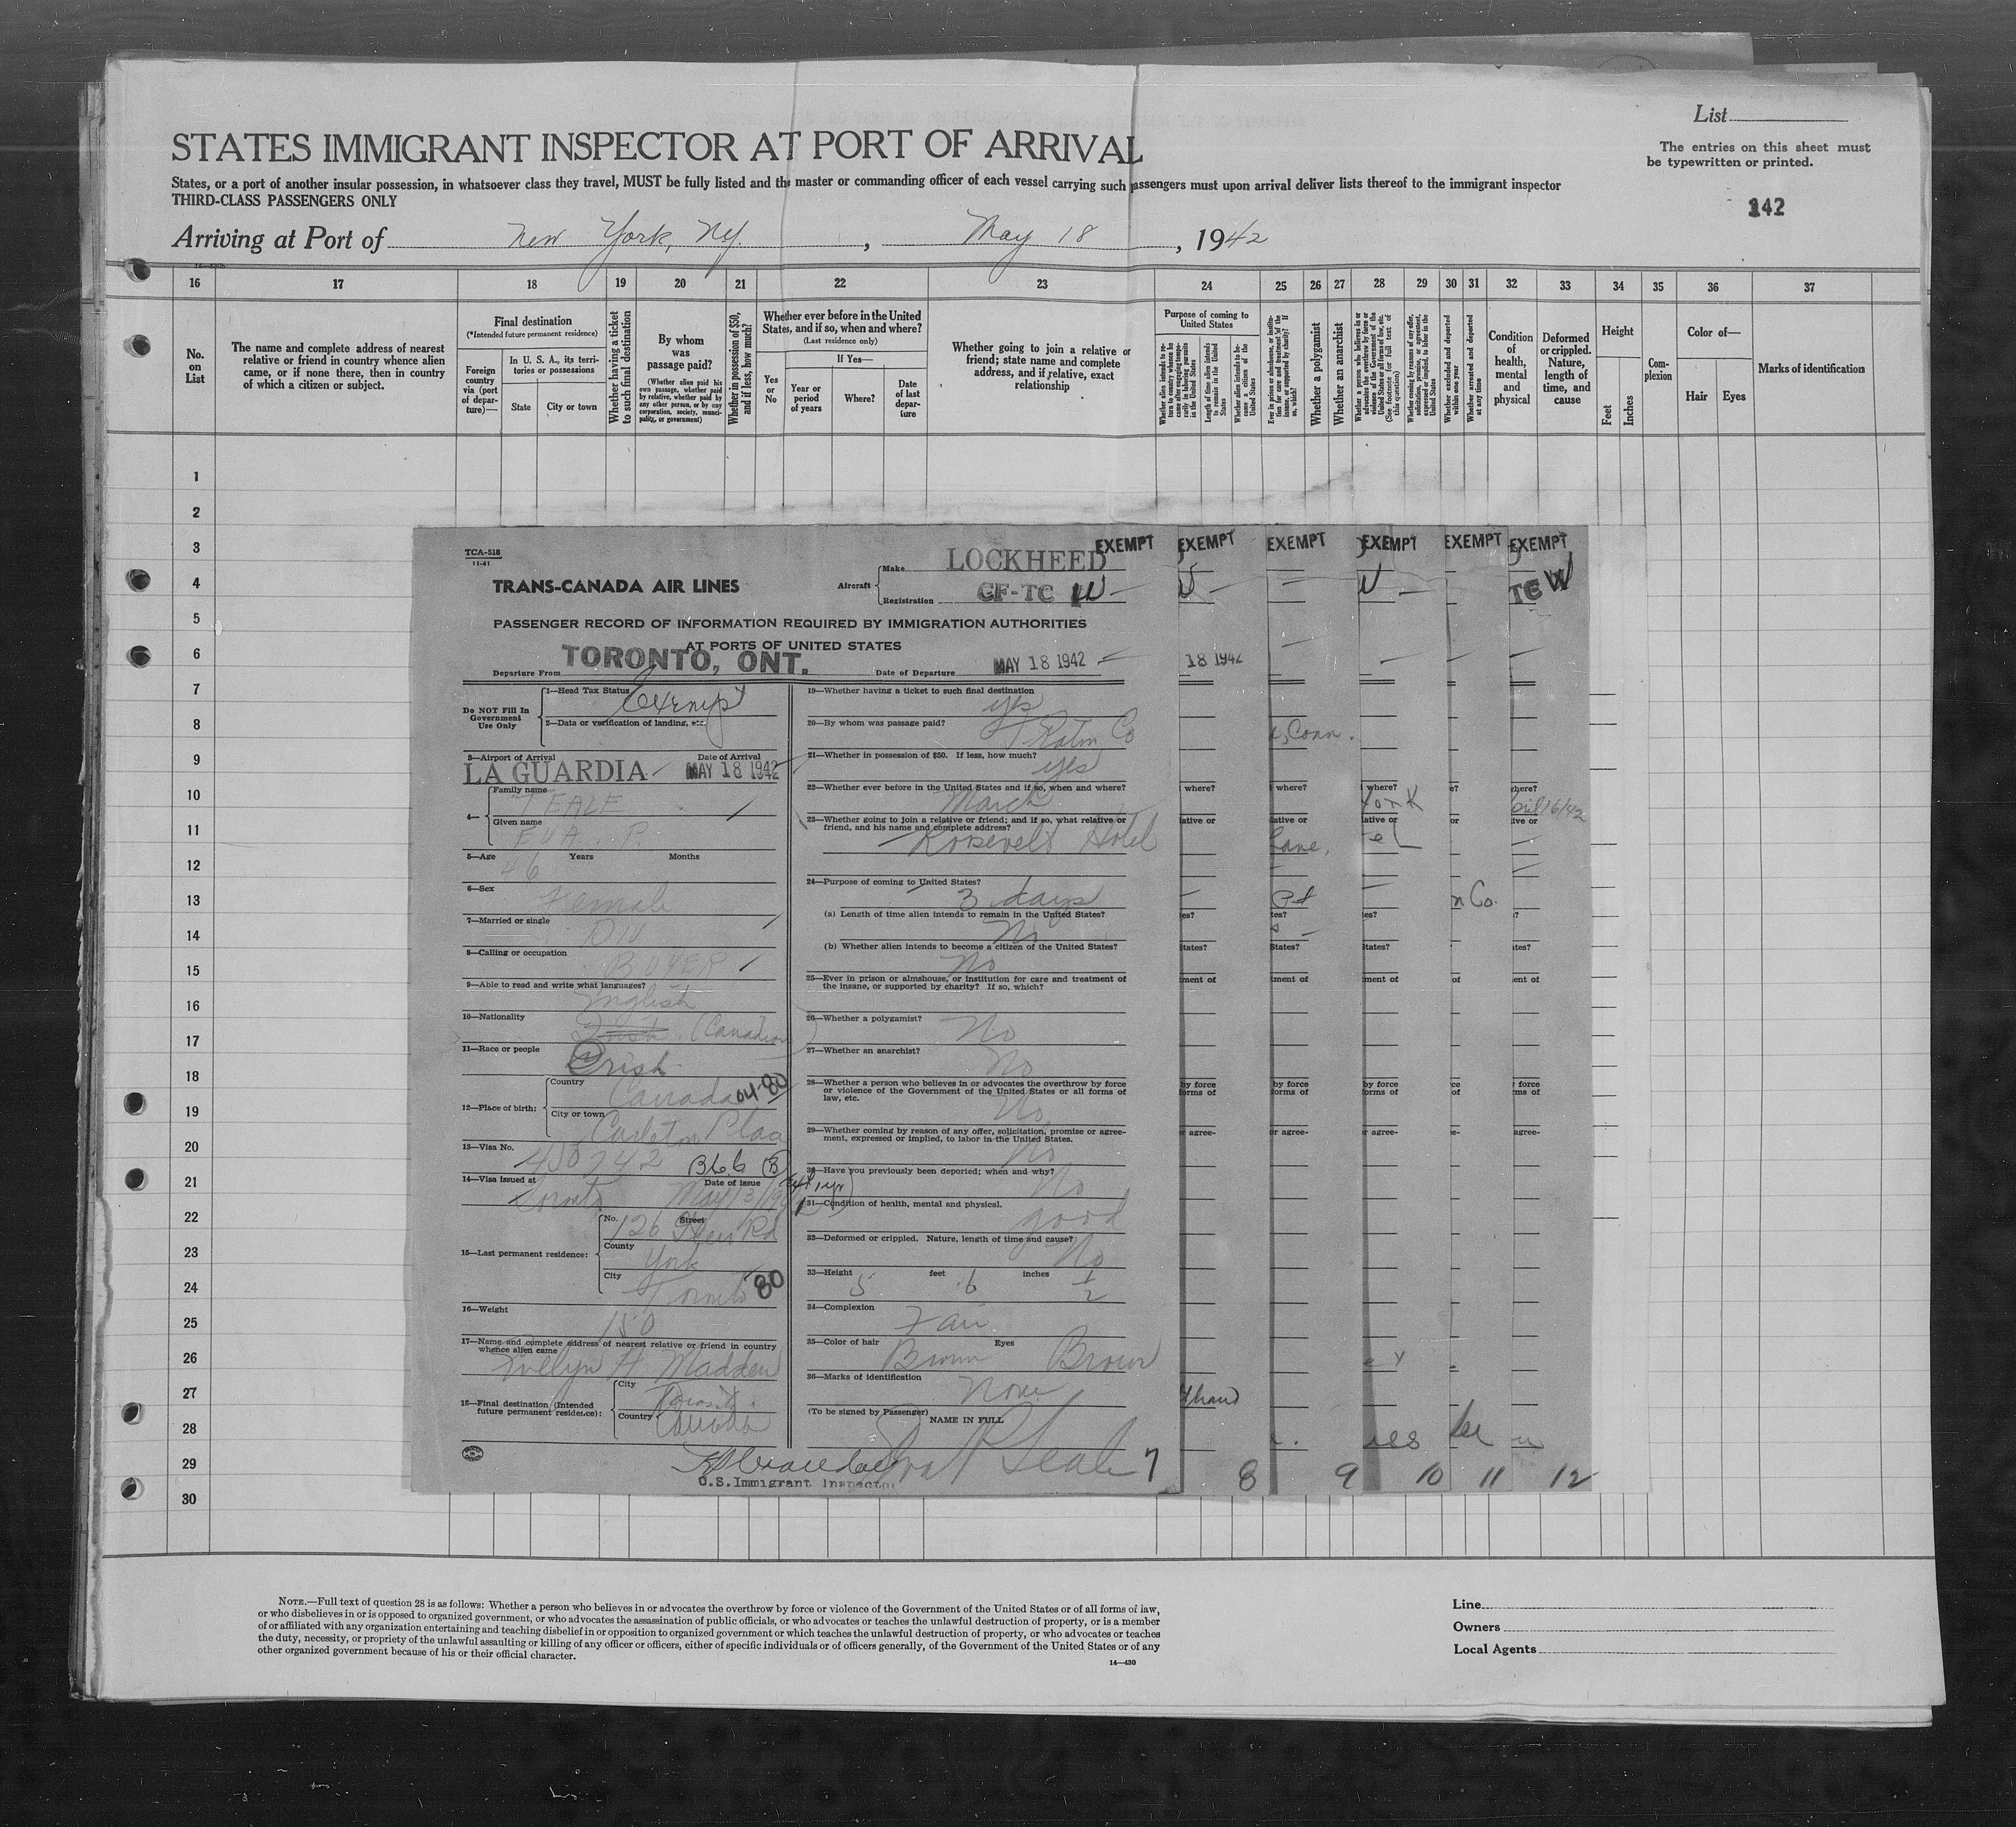 List
The entries on this sheet must
be typewritten or printed.
STATES IMMIGRANT INSPECTOR AT PORT OF ARRIVAL
States, or a port of another insular possession, in whatsoever class they travel, MUST be fully listed and the master or commanding officer of each vessel carrying such passengers must upon arrival deliver lists thereof to the immigrant inspector
THIRD-CLASS PASSENGERS ONLY
242
Arriving at Port of New York, NY. , May 18 , 1942
16 17 18 19 20 21 22 23 24 25 26 27 28 29 30 31 32 33 34 35 36 37
No. on List
The name and complete address of nearest
relative or friend in country whence alien
came, or if none there, then in country
of which a citizen or subject.
Final destination
(*Intended future permanent residence)
Foreign country via (port of departure)—
In U. S. A., its territories or possessions
State
City or town
Whether having a ticket
to such final destination
By whom
was
passage paid?
(Whether alien paid his
own passage, whether paid
by relative, whether paid by
any other person, or by any
corporation, society, munici-
pality, or government)
Whether in possession of $50,
and if less, how much?
Whether ever before in the United
States, and if so, when and where?
(Last residence only)
Yes or No
If Yes—
Year or period of years
Where?
Date of last departure
Whether going to join a relative or
friend; state name and complete
address, and if relative, exact
relationship
Purpose of coming to
United States
Whether a polygamist
Whether an anarchist
Whether excluded and deported
within one year
Whether arrested and deported
at any time
Condition
of
health,
mental
and
physical
Deformed
or crippled.
Nature,
length of
time, and
cause
Height
Feet
Inches
Com-
plexion
Color of—
Hair
Eyes
Marks of identification
1
2
3
4
5
6
7
8
9
10
11
12
13
14
15
16
17
18
19
20
21
22
23
24
25
26
27
28
29
30
TCA-518
11-41
TRANS-CANADA AIR LINES
Aircraft
Make LOCKHEED
Registration CF-TC W
EXEMPT EXEMPT EXEMPT EXEMPT EXEMPT EXEMPT
TC W
PASSENGER RECORD OF INFORMATION REQUIRED BY IMMIGRATION AUTHORITIES
AT PORTS OF UNITED STATES
Departure From TORONTO, ONT.
Date of Departure MAY 18 1942
18 1942
Do NOT Fill In
Government
Use Only
1—Head Tax Status Exempt
2—Data or verification of landing, etc.
3—Airport of Arrival LA GUARDIA
Date of Arrival MAY 18 1942
4— Family name TEALE
Given name EVA. P.
5—Age 46 Years Months
6—Sex Female
7—Married or single
8—Calling or occupation BUYER
9—Able to read and write what languages? English
10—Nationality (Canadian)
11—Race or people Irish
12—Place of birth: Country Canada 04-80
City or town Carleton Place
13—Visa No. 450742 B66
14—Visa issued at Toronto Date of issue May 13/1942
15—Last permanent residence: No. 126 Street Rd
County York
City Toronto 80
16—Weight 150
17—Name and complete address of nearest relative or friend in country
whence alien came Evelyn H Madden
18—Final destination (Intended
future permanent residence):
City Toronto
Country Canada
U.S. Immigrant Inspector
19—Whether having a ticket to such final destination yes
20—By whom was passage paid? T Eaton Co
21—Whether in possession of $50. If less, how much? yes
22—Whether ever before in the United States and if so, when and where? March
23—Whether going to join a relative or friend; and if so, what relative or
friend, and his name and complete address? Rosevelt Hotel
24—Purpose of coming to United States? 3 days
(a) Length of time alien intends to remain in the United States? No
(b) Whether alien intends to become a citizen of the United States? No
25—Ever in prison or almshouse, or institution for care and treatment of
the insane, or supported by charity? If so, which?
26—Whether a polygamist? No
27—Whether an anarchist? No
28—Whether a person who believes in or advocates the overthrow by force
or violence of the Government of the United States or all forms of
law, etc. No
29—Whether coming by reason of any offer, solicitation, promise or agree-
ment, expressed or implied, to labor in the United States. No
30—Have you previously been deported; when and why? No
31—Condition of health, mental and physical. good
32—Deformed or crippled. Nature, length of time and cause? No
33—Height 5 feet 6 inches 1/2
34—Complexion Fair
35—Color of hair Brown Eyes Brown
36—Marks of identification None
(To be signed by Passenger) NAME IN FULL
Eva P Teale
7 8 9 10 11 12
NOTE.—Full text of question 28 is as follows: Whether a person who believes in or advocates the overthrow by force or violence of the Government of the United States or of all forms of law,
or who disbelieves in or is opposed to organized government, or who advocates the assassination of public officials, or who advocates or teaches the unlawful destruction of property, or is a member
of or affiliated with any organization entertaining and teaching disbelief in or opposition to organized government or which teaches the unlawful destruction of property, or who advocates or teaches
the duty, necessity, or propriety of the unlawful assaulting or killing of any officer or officers, either of specific individuals or of officers generally, of the Government of the United States or of any
other organized government because of his or their official character.
14—430
Line
Owners
Local Agents